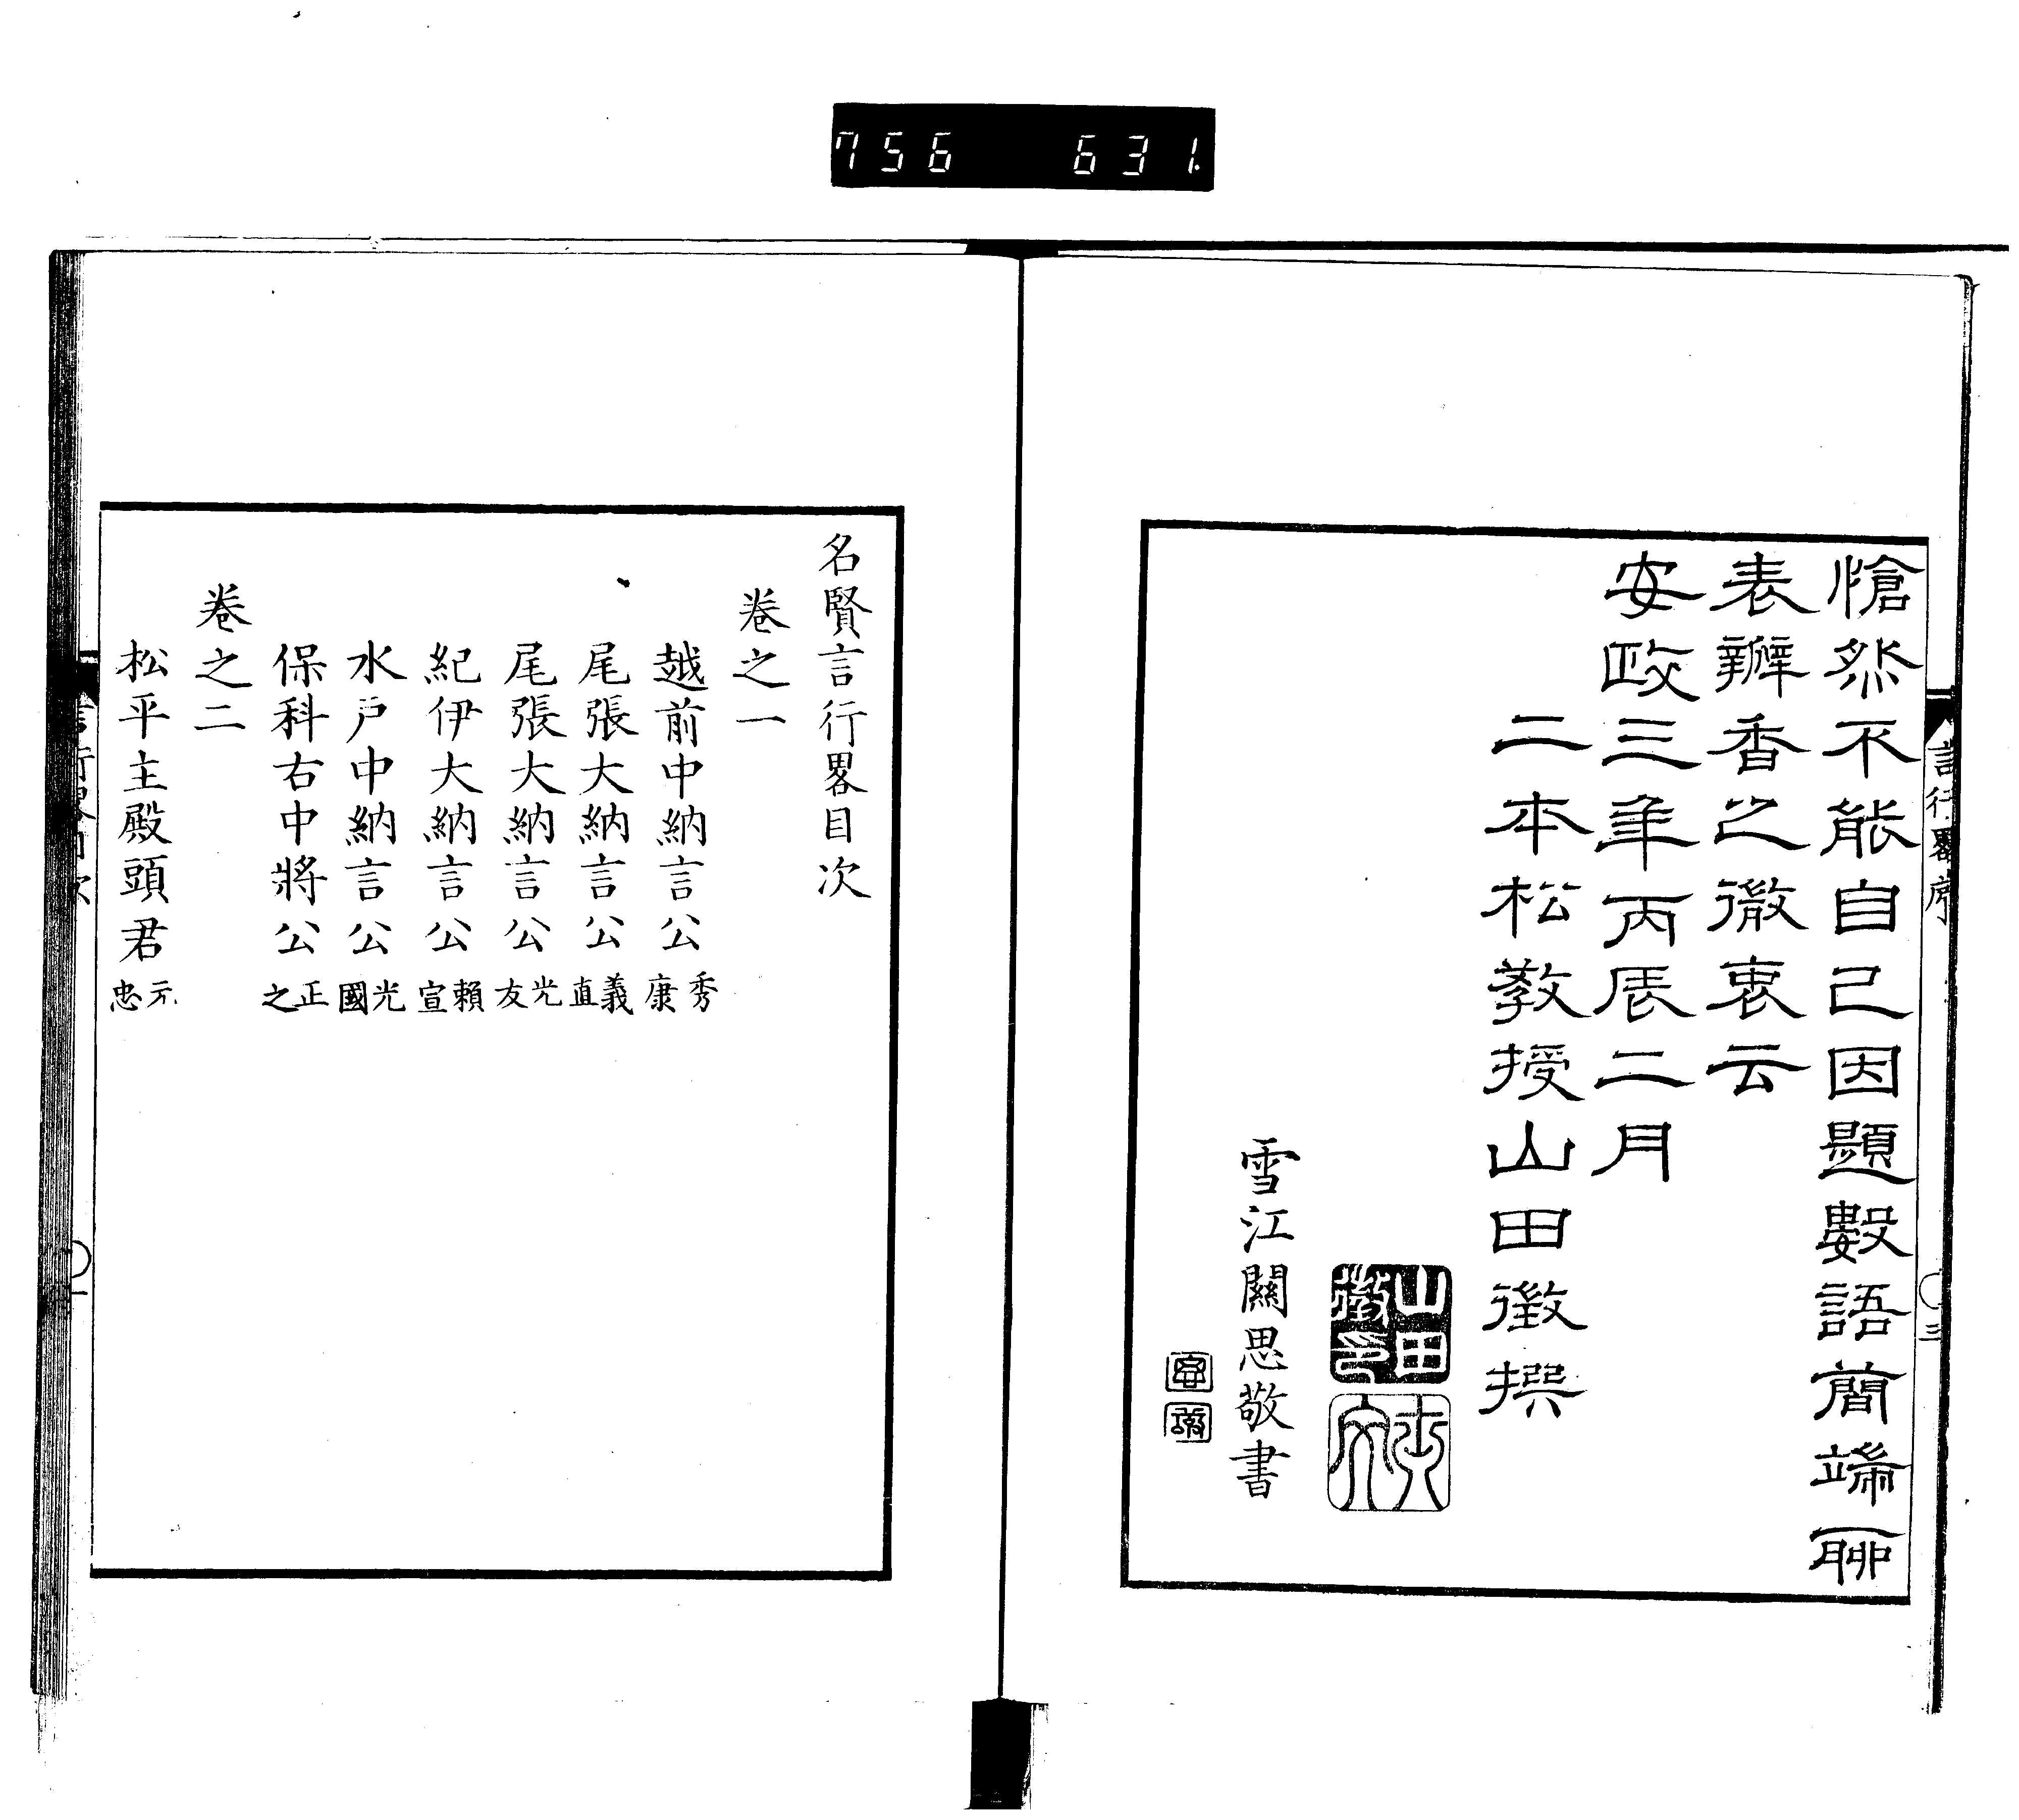 756 631.
愴然不能自已因題數語簡端聊
表瓣香之微衷云
安政三年丙辰二月
二本松教授山田徵撰
雪江關思敬書
言行畧序
三
名賢言行畧目次
卷之一
越前中納言公 秀康
尾張大納言公 義直
尾張大納言公 光友
紀伊大納言公 賴宣
水戶中納言公 光國
保科右中將公 正之
卷之二
松平主殿頭君 元忠